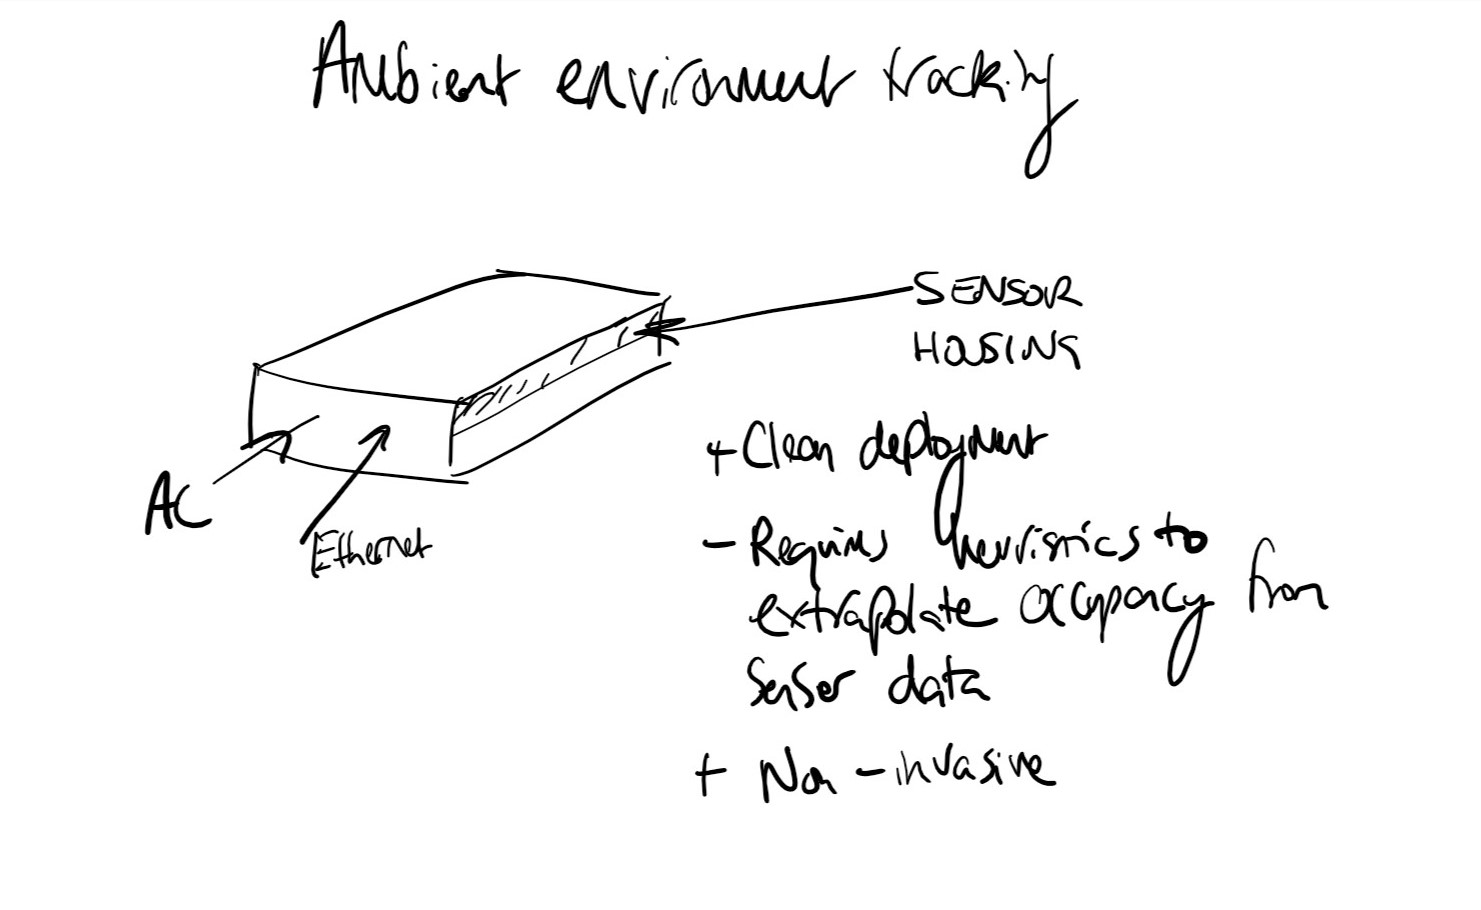 Ambient environment tracking
SENSOR
HOUSING
AC
Ethernet
+ Clean deployment
- Requires heuristics to
extrapolate occupancy from
Sensor data
+ Non-invasive